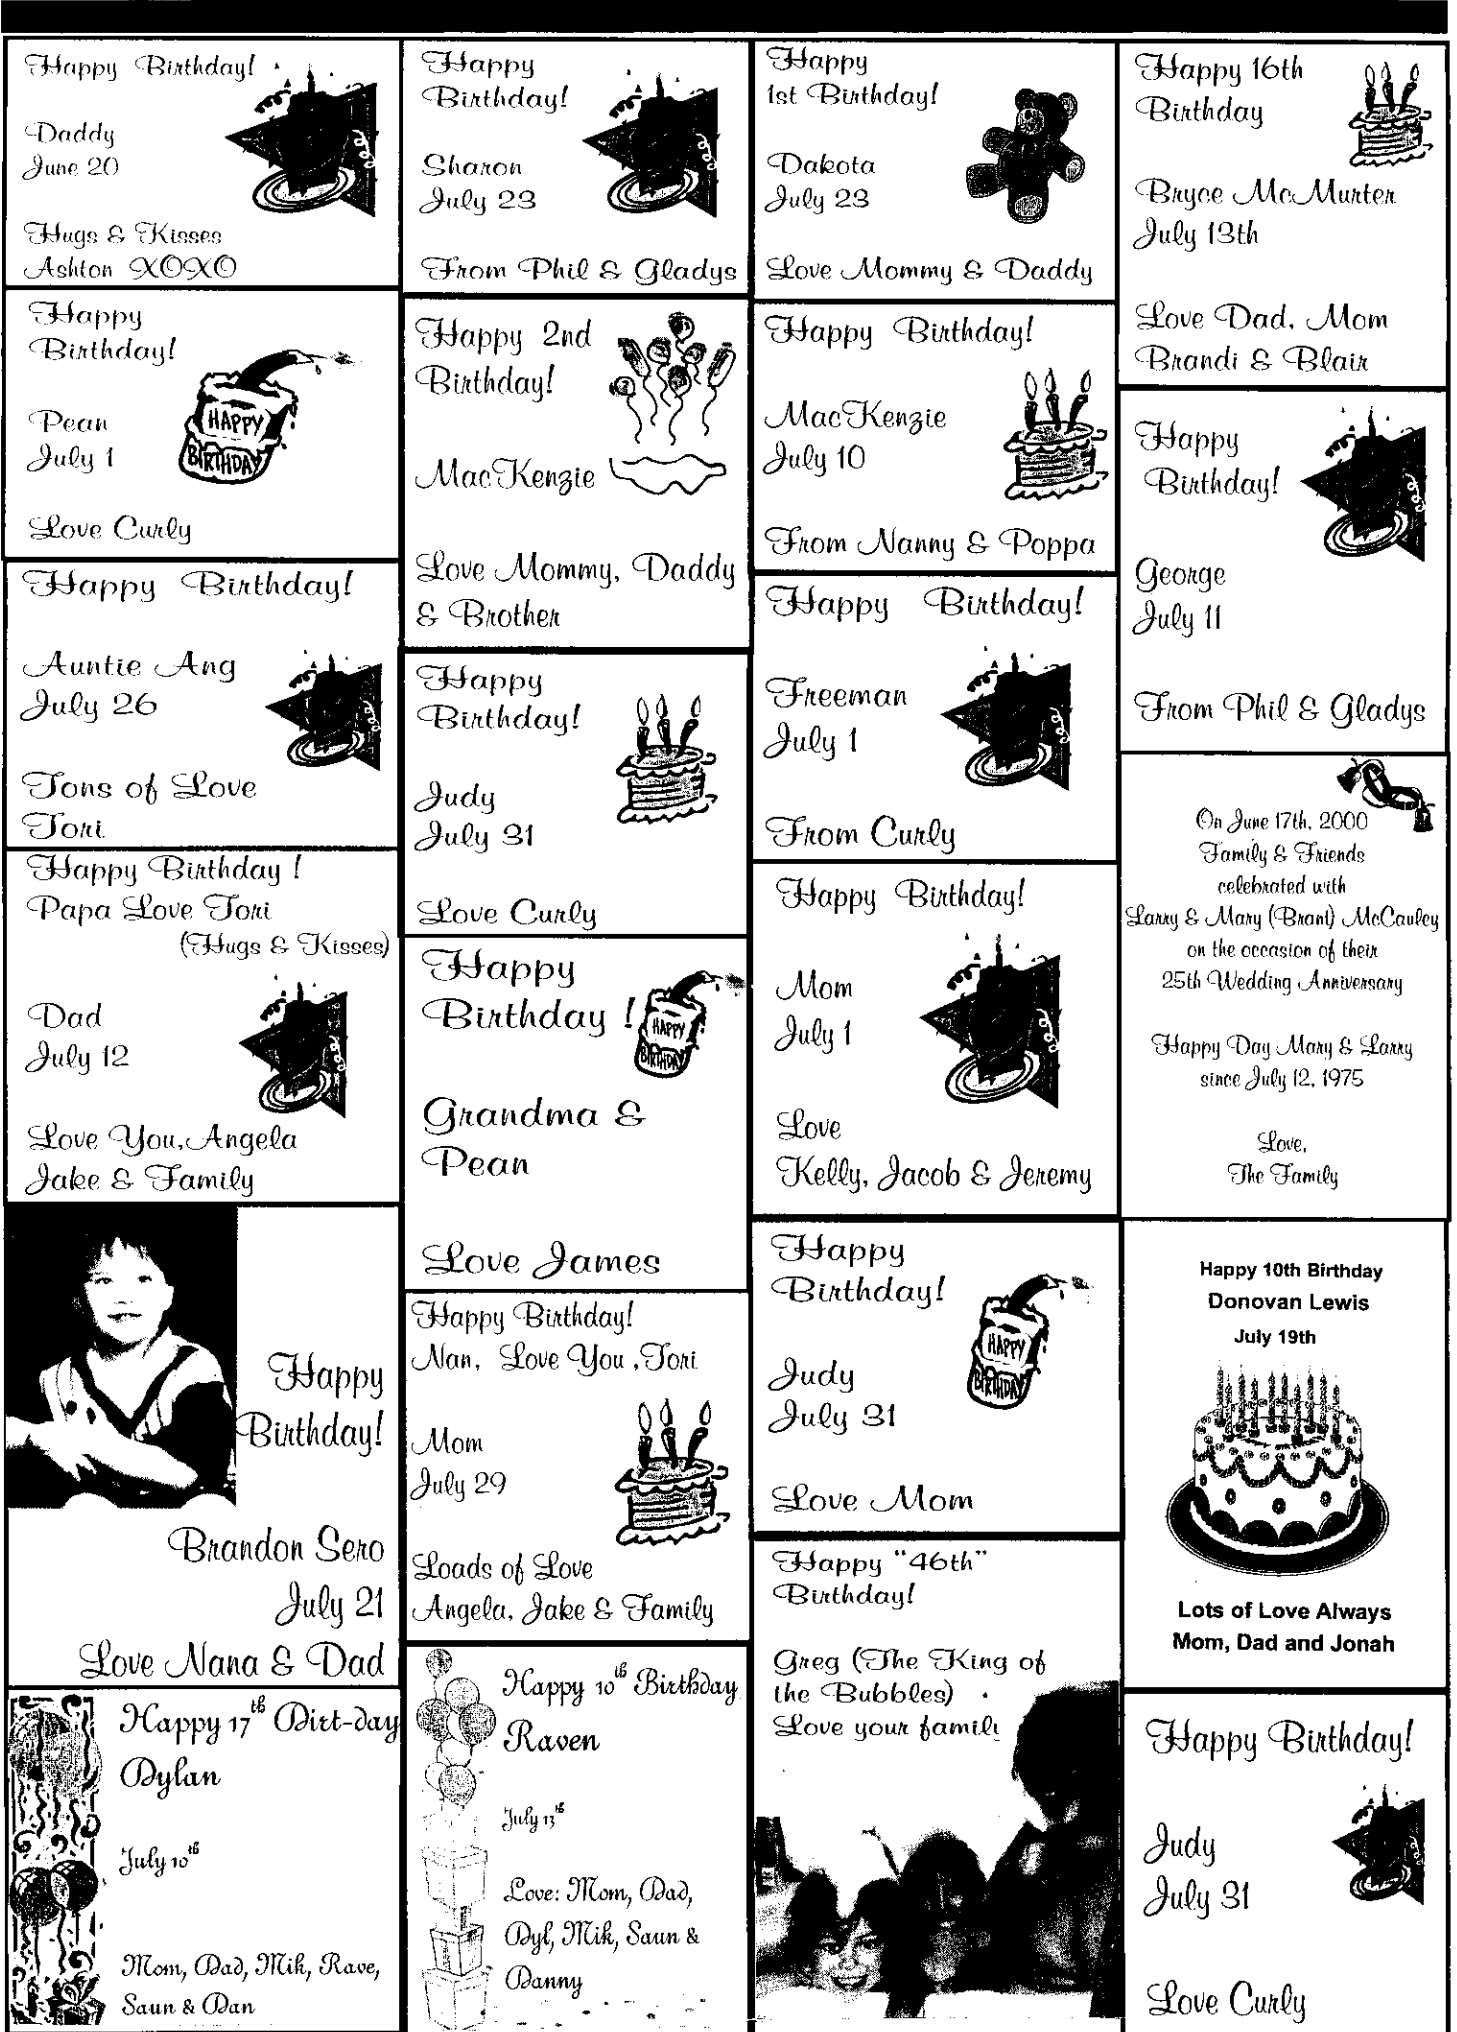 Happy Birthday!
Daddy
June 20
Hugs & Kisses
Ashton XOXO
Happy
Birthday!
Pean
July 1
HAPPY
BIRTHDAY
Love Curly
Happy Birthday!
Auntie Ang
July 26
Tons of Love
Tori
Happy Birthday !
Papa Love Tori
(Hugs & Kisses)
Dad
July 12
Love You, Angela
Jake & Family
Happy
Birthday!
Brandon Sero
July 21
Love Nana & Dad
Happy 17th Dirt-day
Dylan
July 10th
Mom, Dad, Mik, Rave,
Saun & Dan
Happy
Birthday!
Sharon
July 23
From Phil & Gladys
Happy 2nd
Birthday!
MacKenzie
Love Mommy, Daddy
& Brother
Happy
Birthday!
Judy
July 31
Love Curly
Happy
Birthday !
HAPPY
BIRTHDAY
Grandma &
Pean
Love James
Happy Birthday!
Nan, Love You ,Tori
Mom
July 29
Loads of Love
Angela, Jake & Family
Happy 10th Birthday
Raven
July 13th
Love: Mom, Dad,
Dyl, Mik, Saun &
Danny
Happy
1st Birthday!
Dakota
July 23
Love Mommy & Daddy
Happy Birthday!
MacKenzie
July 10
From Nanny & Poppa
Happy Birthday!
Freeman
July 1
From Curly
Happy Birthday!
Mom
July 1
Love
Kelly, Jacob & Jeremy
Happy
Birthday!
HAPPY
BIRTHDAY
Judy
July 31
Love Mom
Happy "46th"
Birthday!
Greg (The King of
the Bubbles)
Love your family
Happy 16th
Birthday
Bryce McMurter
July 13th
Love Dad, Mom
Brandi & Blair
Happy
Birthday!
George
July 11
From Phil & Gladys
On June 17th, 2000
Family & Friends
celebrated with
Larry & Mary (Brant) McCauley
on the occasion of their
25th Wedding Anniversary
Happy Day Mary & Larry
since July 12, 1975
Love,
The Family
Happy 10th Birthday
Donovan Lewis
July 19th
Lots of Love Always
Mom, Dad and Jonah
Happy Birthday!
Judy
July 31
Love Curly